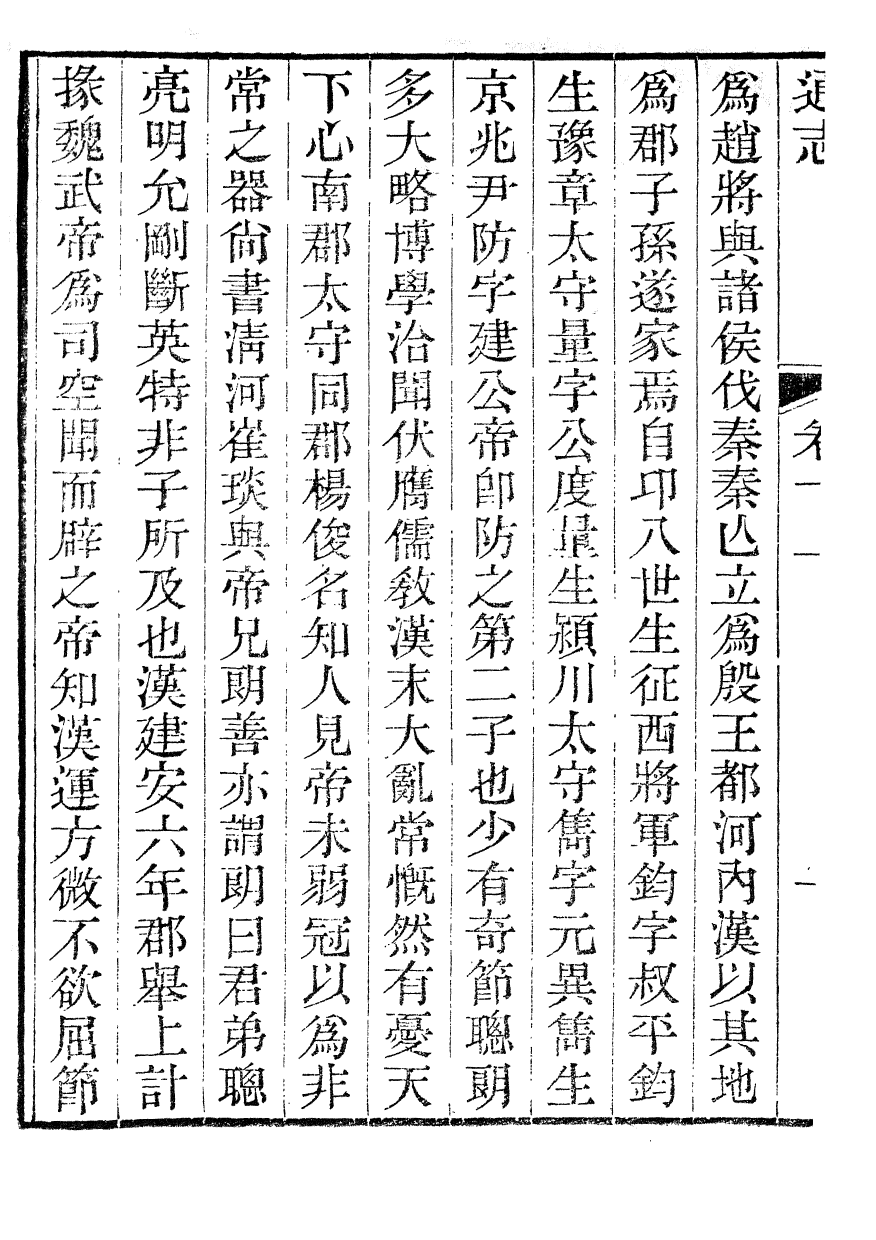 通志 卷一 一 一
為趙將與諸侯伐秦秦亾立為殷王都河內漢以其地
為郡子孫遂家焉自卭八世生征西將軍鈞字叔平鈞
生豫章太守量字公度量生潁川太守雋字元異雋生
京兆尹防字建公帝卽防之第二子也少有奇節聰朗
多大略博學洽聞伏膺儒教漢末大亂常慨然有憂天
下心南郡太守同郡楊俊名知人見帝未弱冠以為非
常之器尚書清河崔琰與帝兄朗善亦謂朗曰君弟聰
亮明允剛斷英特非子所及也漢建安六年郡舉上計
掾魏武帝為司空聞而辟之帝知漢運方微不欲屈節